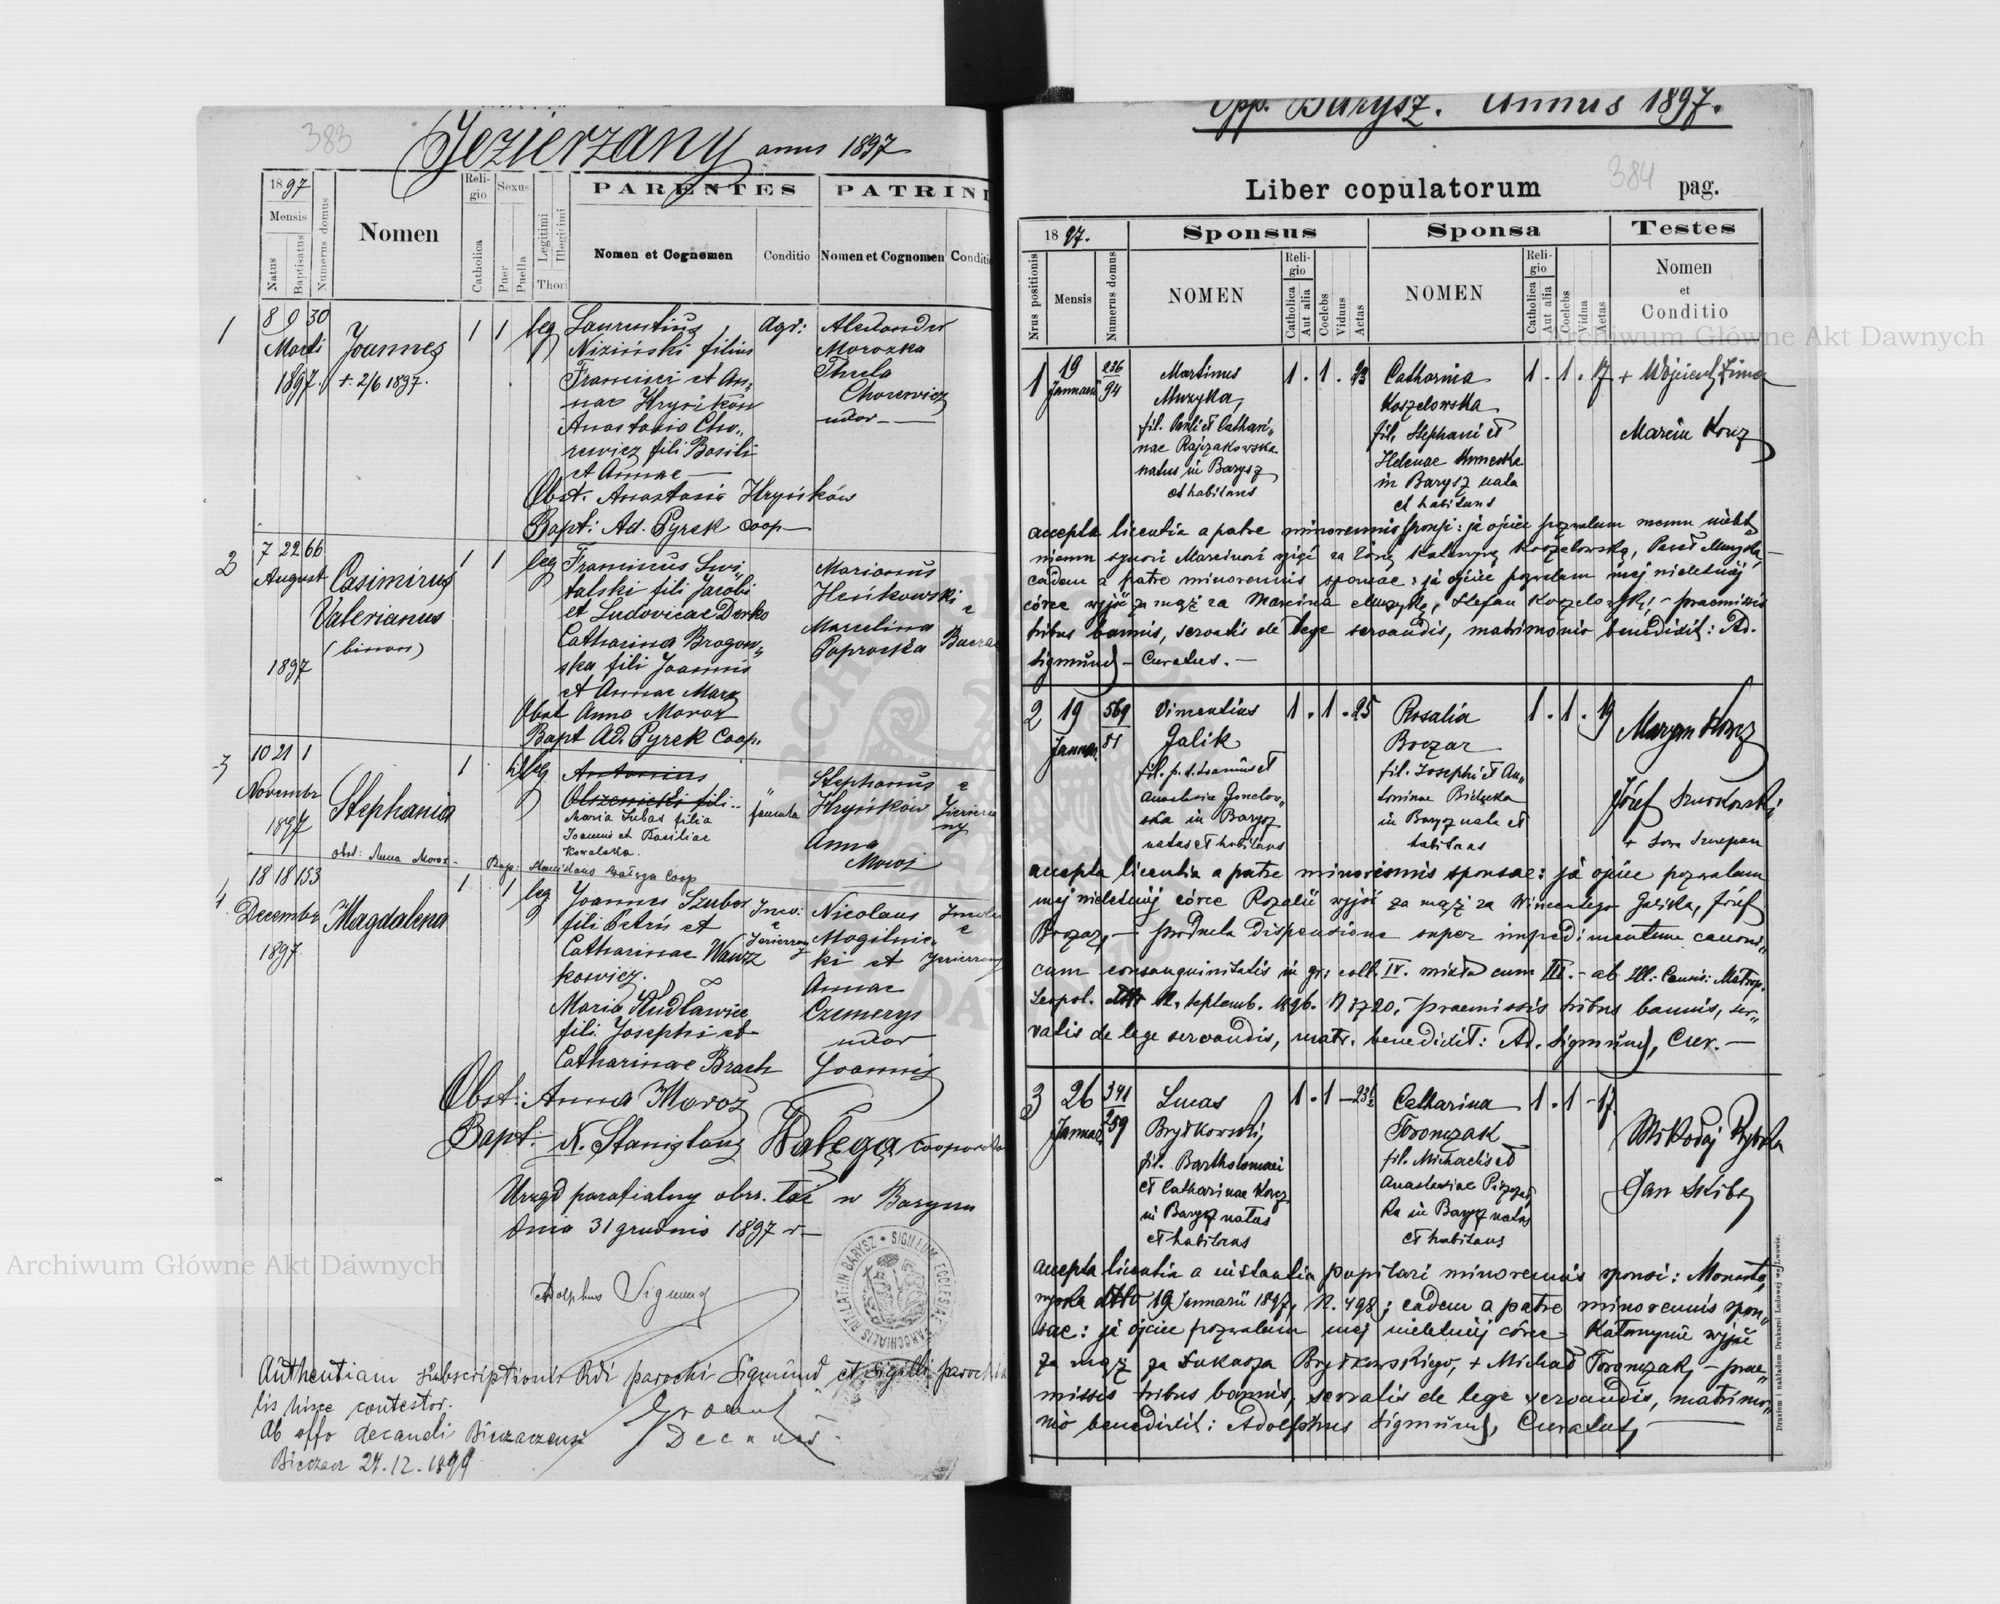 383
Jezierzany annus 1897
1897
Mensis
Natus
Baptisatus
Numerus domus
Nomen
Religio
Catholica
Sexus
Puer
Puella
Legitimi
Illegitimi
Thori
PARENTES
Nomen et Cognomen
Conditio
PATRINI
Nomen et Cognomen
Conditio
1
8 9 30
Marti
1897.
Joannes
+ 2/6 1897.
1 1 leg
Laurentius
Niziński filius
Francisci et An„
nae Hryńków
Anastasia Cho„
rewicz fili Basili
et Annae —
Agr:
Alexander
Morozka
Thecla
Chorewicz
uxor —
Obst. Anastasia Hryńków
Bapt: Ad. Pyrek Coop—
2
7 22 66
August
1897
Casimirus
Valerianus
(binom)
1 1 leg
Franciscus Swi„
talski fili Jacobi
et Ludovicae Derko
Catharina Brogow„
ska fili Joannis
et Annae Marz
Obst Anna Moroz
Bapt Ad. Pyrek Coop.
Marianus
Marcelina
3
10 21 1
Novembr
1897
Stephania
1
Antonius
Olszewicki fili..
Maria Lubas filia
Joannis et Basiliae
Kowalska.
famula
Stephanus
Hryńków
Anna
Moroz
Obst: Anna Moroz -
Bap: Stanislaus Wałęga Coop
4
18 18 153
Decembr
1897
Magdalena
1 1 leg
Joannes Szubar
fili Petri et
Catharinae Wawrz
kowicz.
Maria Kudławiec
fili Josephi et
Catharinae Brach
Nicolaus
Mogilnic„
ki et
Annae
Czemerys
uxor
Joannis
Obst: Anna Moroz
Bapt: X. Stanislaus Wałęga cooperator
Urząd parafialny obrz. łać w Baryszu
dnia 31 grudnia 1897 r—
Adolphus Sigmund
SIGILLUM ECCLESIAE PAROCHIALIS RIT. LAT. IN BARYSZ
Authentiam subscriptionis Rdi parochi Sigmund et sigilli parochia
lis hisce contestor.
Ab offo decanali Buczaczensi
Buczacz 27.12.1899
Decanus
Opp. Barysz. Annus 1897.
384
Liber copulatorum pag.
1897.
Nrus positionis
Mensis
Numerus domus
Sponsus
NOMEN
Religio
Catholica
Aut alia
Coelebs
Viduus
Aetas
Sponsa
NOMEN
Religio
Catholica
Aut alia
Coelebs
Vidua
Aetas
Testes
Nomen
et
Conditio
1
19
Januarii
236
94
Martinus
Muzyka,
fil. Pauli et Cathari„
nae Rajzakowska
natus in Barysz
et habitans
1 . 1 . 23
Catharina
Koszelowska
fil. Stephani et
Helenae
in Barysz nata
et habitans
1 . 1 . 17
+ Wojciech Zima
Marcin Korcz
accepta licentia a patre minorennis sponsi: ja ojciec pozwalam memu nielet„
niemu synowi Marcinowi wziąć za żonę Katarzynę Koszelowską, Paweł Muzyka, —
eadem a patre minorennis sponsae: ja ojciec pozwalam mej nieletniej
córce wyjść za mąż za Marcina Muzykę, Stefan Koszelowski, - praemissis
tribus bannis, servatis de lege servandis, matrimonio benedixit: Ad.
Sigmund — Curatus. —
2
19
Januar.
569
81
Vincentius
Galik
fil. p. d. Joannis et
Anastasia
ska in Barysz
natus et habitans
1 . 1 . 25
Rosalia
Boczar
fil. Josephi et An„
toninae
in Barysz nata et
habitans
1 . 1 . 19
Maryan Korcz
Józef
accepta licentia a patre minorennis sponsae: ja ojciec pozwalam
mej nieletniej córce Rozalii wyjść za mąż za Wincentego Galika, Józef
Boczar, — producta dispensatione super impedimentum canoni„
cum consanguinitatis in gr: coll. IV. mixta cum III. - ab Ill. Consis: Metrop.
Leopol. ddto 12. Septemb. 1896. N 3720, - praemissis tribus bannis, ser„
vatis de lege servandis, matr. benedixit: Ad. Sigmund, Cur. —
3
26
Januar.
341
259
Lucas
Brydkowski,
fil. Bartholomaei
et Catharinae Korcz
in Barysz natus
et habitans
1 . 1 — 23½
Catharina
Toronczak
fil. Michaelis et
Anastasiae
ka in Barysz nata
et habitans
1 . 1 - 17.
Mikołaj Rybka
Jan Skiba
accepta licentia a instantia pupilari minorennis sponsi: Monaste„
ryska ddto 19 Januarii 1897, N. 498; eadem a patre minorennis spon„
sae: ja ojciec pozwalam mej nieletniej córce Katarzynie wyjść
za mąż za Łukasza Brydkowskiego, + Michał Toronczak, - prae„
missis tribus bannis, servatis de lege servandis, matrimo„
nio benedixit: Adolphus Sigmund, Curatus, —
Drukiem i nakładem Drukarni Ludowej we Lwowie.
Archiwum Główne Akt Dawnych
Archiwum Główne Akt Dawnych